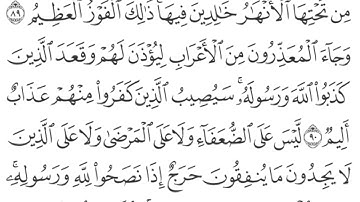 مِن تَحْتِهَا ٱلْأَنْهَٰرُ خَٰلِدِينَ فِيهَا ذَٰلِكَ ٱلْفَوْزُ ٱلْعَظِيمُ ٨٩
وَجَآءَ ٱلْمُعَذِّرُونَ مِنَ ٱلْأَعْرَابِ لِيُؤْذَنَ لَهُمْ وَقَعَدَ ٱلَّذِينَ
كَذَبُوا۟ ٱللَّهَ وَرَسُولَهُۥ ۚ سَيُصِيبُ ٱلَّذِينَ كَفَرُوا۟ مِنْهُمْ عَذَابٌ
أَلِيمٌ ٩٠ لَّيْسَ عَلَى ٱلضُّعَفَآءِ وَلَا عَلَى ٱلْمَرْضَىٰ وَلَا عَلَى ٱلَّذِينَ
لَا يَجِدُونَ مَا يُنفِقُونَ حَرَجٌ إِذَا نَصَحُوا۟ لِلَّهِ وَرَسُولِهِۦ ۚ